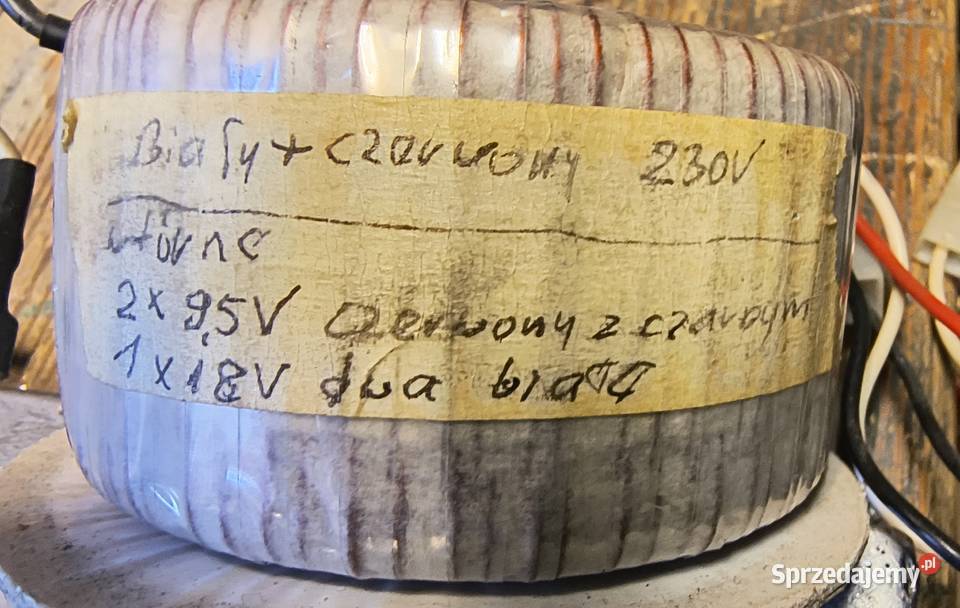 Biały + czerwony 230V
wtórne
2 x 9,5V Czerwony z czarnym
1 x 18V dwa białe
Sprzedajemy.pl